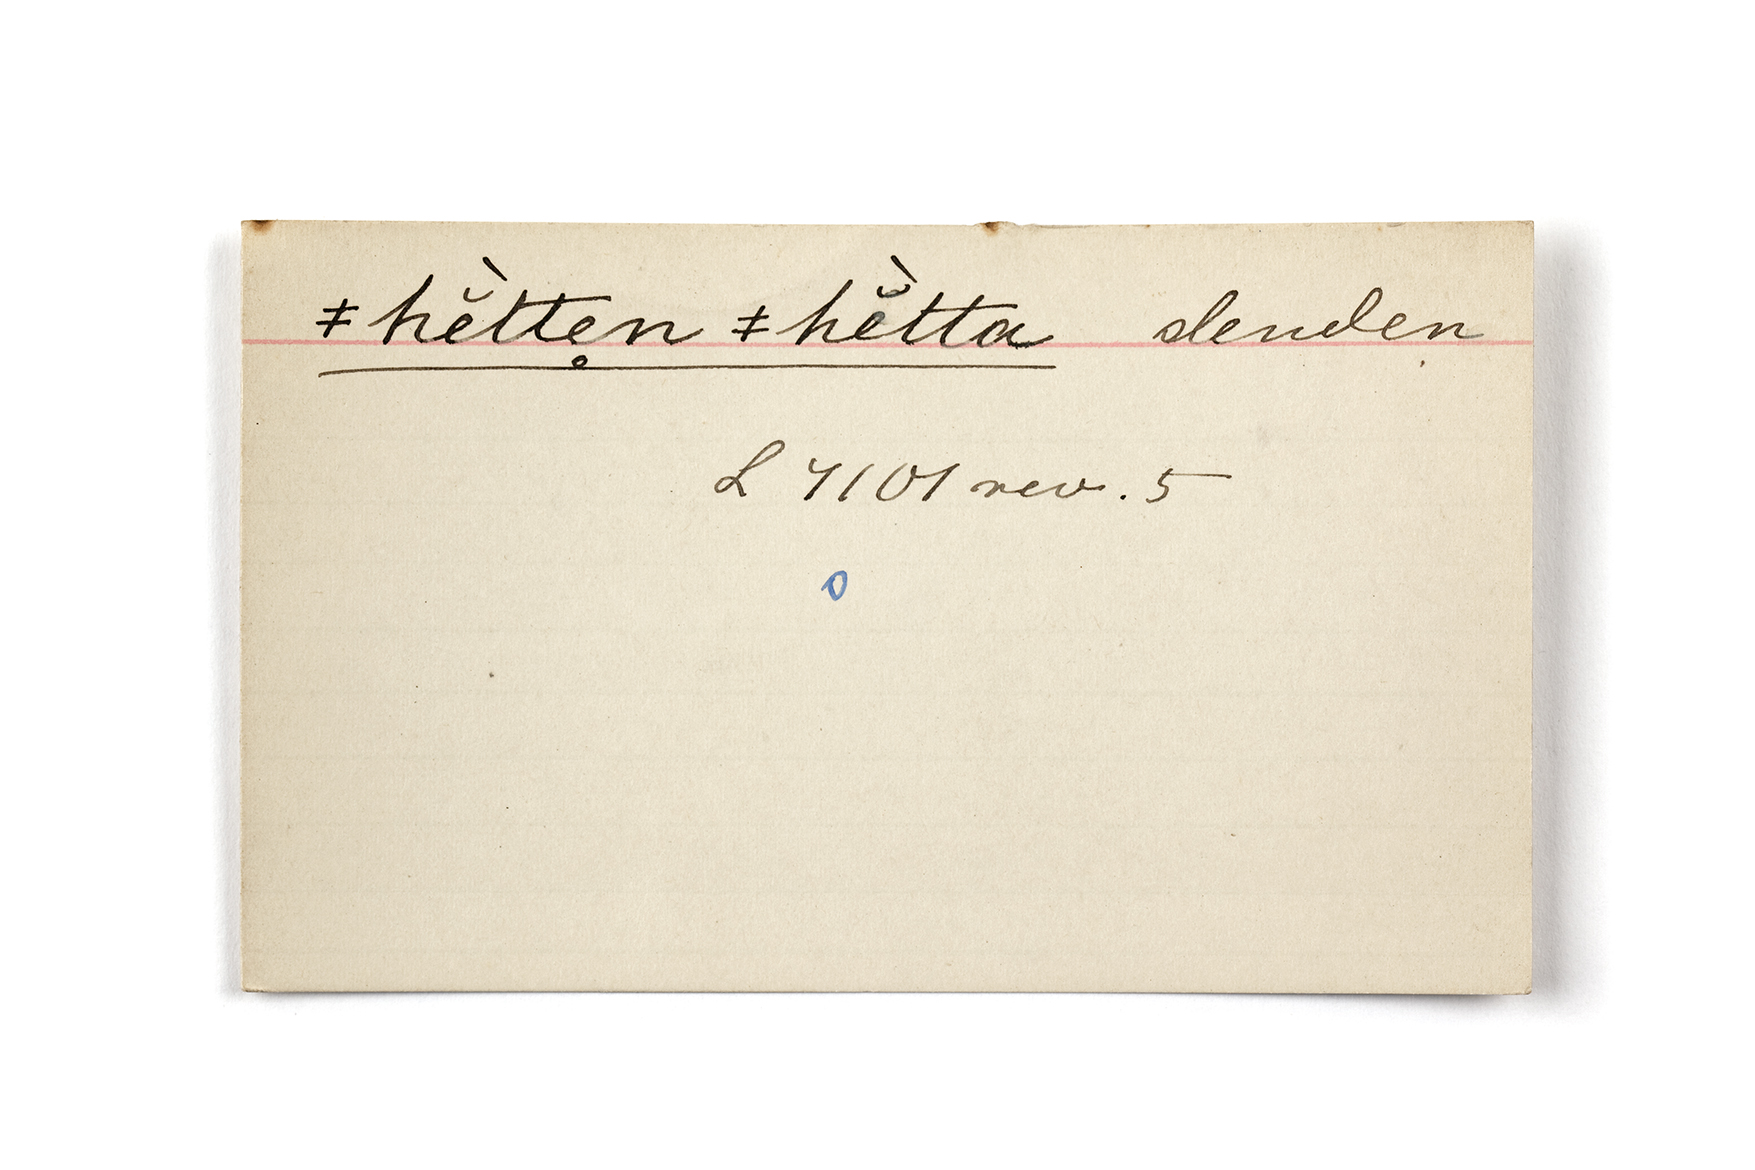 ǂhĕ̀tte̥n ǂhĕ̀tta slender
L 7101 rev. 5
o